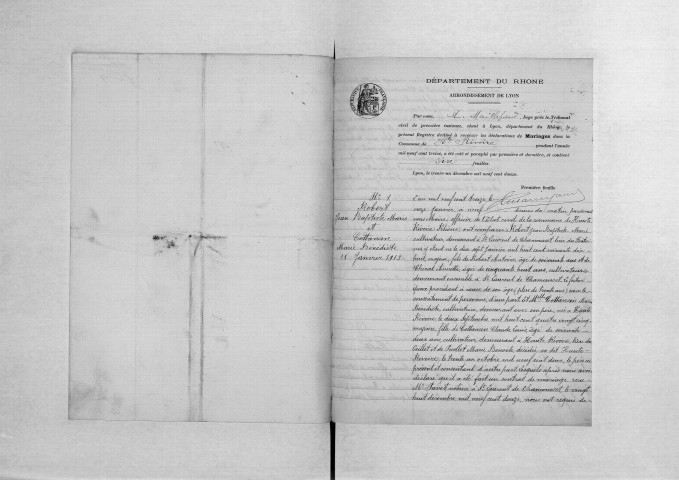 DÉPARTEMENT DU RHONE
ARRONDISSEMENT DE LYON
Par nous, Juge près le Tribunal
civil de première instance, séant à Lyon, département du Rhône, le
présent Registre destiné à recevoir les déclarations de Mariages dans la
Commune de Hte Rivoire pendant l'année
mil neuf cent treize, a été coté et paraphé par première et dernière, et contient
six feuilles.
Lyon, le trente-un décembre mil neuf cent douze.
Première feuille
No 1
Robert
Jean Baptiste Marie
et
Cottancin
Marie Bénédicte
11 Janvier 1913
L'an mil neuf cent treize le
onze janvier à neuf heures du matin, pardevant
nous Maire, officier de l'Etat civil de la commune de Haute
Rivoire, Rhône, ont comparu Robert Jean Baptiste Marie
cultivateur, demeurant à St Laurent de Chamousset, lieu de
né le dix sept janvier mil huit cent soixante dix
huit, majeur, fils de Robert Antoine, âgé de soixante ans et de
âgée de cinquante huit ans, cultivateurs
demeurant ensemble à St Laurent de Chamousset, le futur
époux procédant à cause de son âge (plus de trente ans) sans le
consentement de personne, d'une part, et Mlle Cottancin Marie
Bénédicte, cultivatrice, demeurant avec son père, née à Haute
Rivoire le deux septembre mil huit cent quatre vingt cinq
majeure, fille de Cottancin Claude Louis, âgé de soixante
deux ans, cultivateur, demeurant à Haute Rivoire, lieu du
et de Marie Benoite décédée au dit Haute-
Rivoire, le trente un octobre mil neuf cent deux, le père ici
présent et consentant, d'autre part, lesquels après nous avoir
déclaré qu'il a été fait un contrat de mariage, reçu
Me notaire à St Laurent de Chamousset, le vingt
huit décembre mil neuf cent douze, nous ont requis de